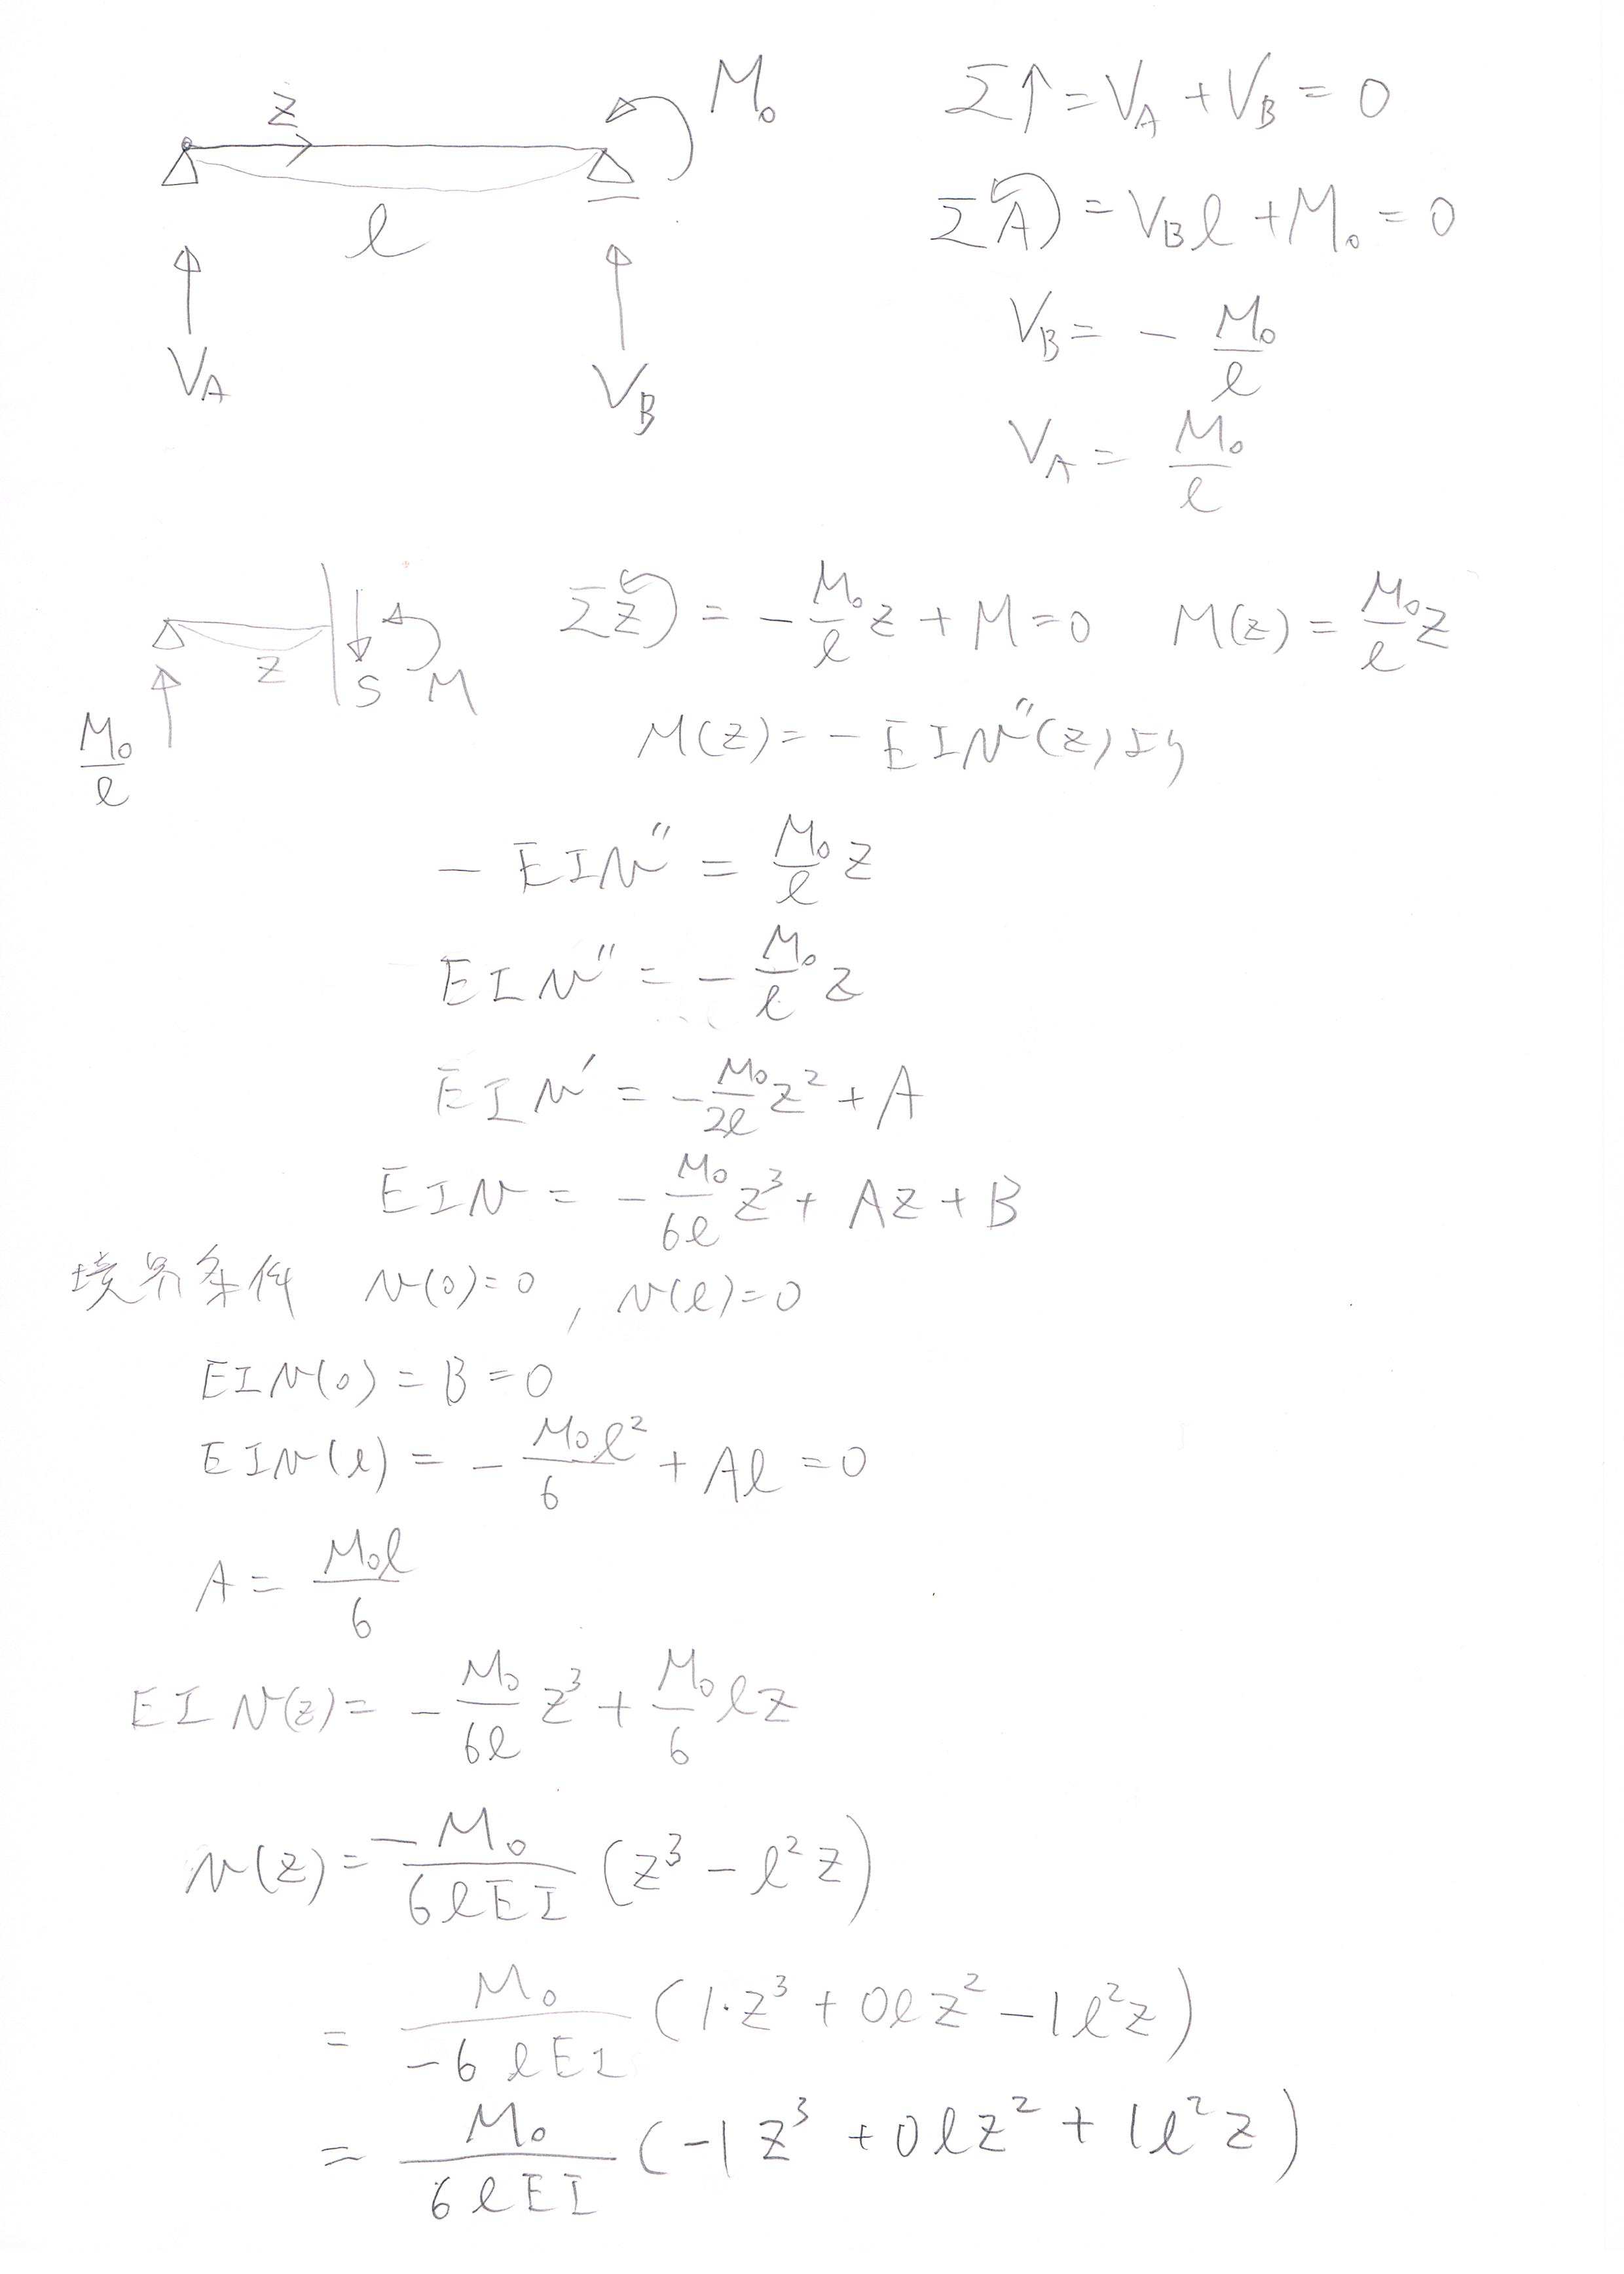 z
M₀
l
V_A
V_B
Σ↑ = V_A + V_B = 0
ΣA↶) = V_B l + M₀ = 0
V_B = - M₀/l
V_A = M₀/l
z
S
M
M₀/l
Σz↶) = - M₀/l z + M = 0 M(z) = M₀/l z
M(z) = - EIv''(z) より
- EIv'' = M₀/l z
EIv'' = - M₀/l z
EIv' = - M₀/2l z² + A
EIv = - M₀/6l z³ + Az + B
境界条件 v(0)=0 , v(l)=0
EIv(0) = B = 0
EIv(l) = - M₀l²/6 + Al = 0
A = M₀l/6
EIv(z) = - M₀/6l z³ + M₀/6 lz
v(z) = -M₀/6lEI (z³ - l²z)
= M₀/-6lEI (1·z³ + 0lz² - 1l²z)
= M₀/6lEI (-1z³ + 0lz² + 1l²z)